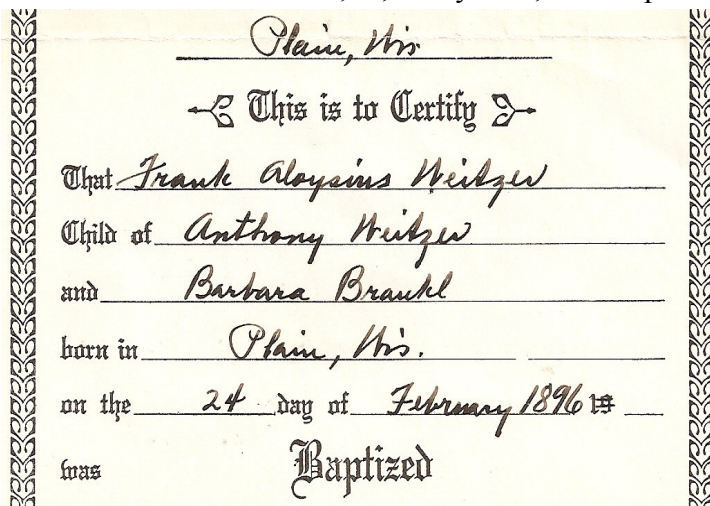 Plain, Wis
This is to Certify
That Frank Aloysius Weitzer
Child of Anthony Weitzer
and Barbara Braukl
born in Plain, Wis.
on the 24 day of February 1896 19
was Baptized